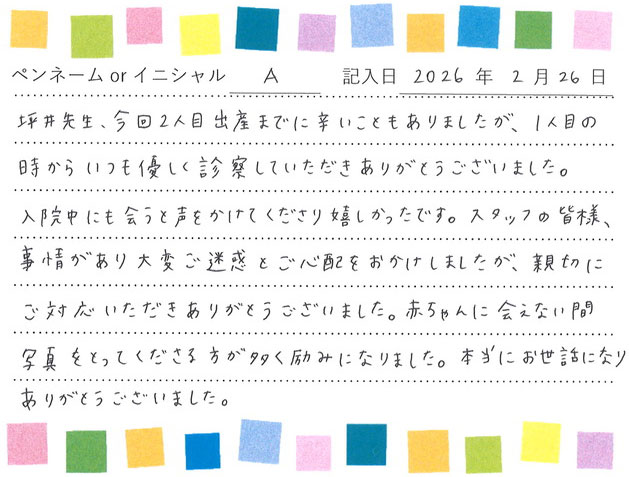 ペンネーム or イニシャル A 記入日 2026 年 2 月 26 日
坪井先生、今回2人目出産までに辛いこともありましたが、1人目の
時からいつも優しく診察していただきありがとうございました。
入院中にも会うと声をかけてくださり嬉しかったです。スタッフの皆様、
事情があり大変ご迷惑とご心配をおかけしましたが、親切に
ご対応いただきありがとうございました。赤ちゃんに会えない間
写真をとってくださる方が多く励みになりました。本当にお世話になり
ありがとうございました。